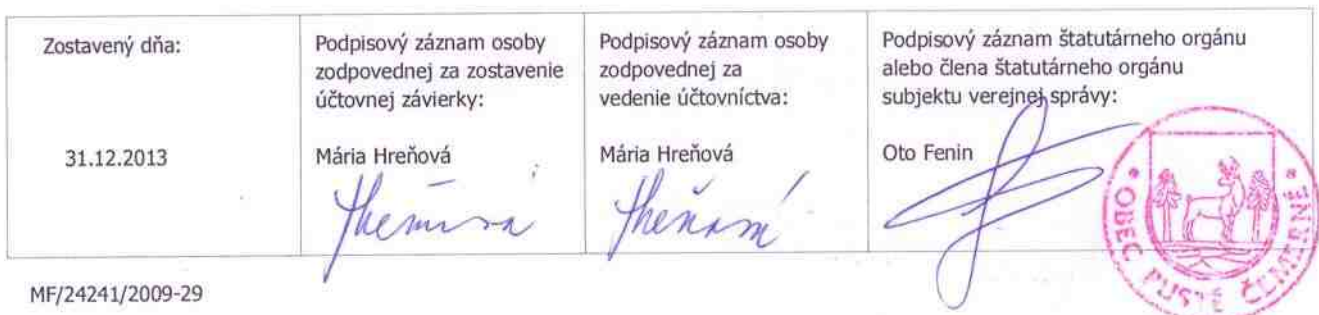 Zostavený dňa:
31.12.2013
Podpisový záznam osoby
zodpovednej za zostavenie
účtovnej závierky:
Mária Hreňová
Hreňová
Podpisový záznam osoby
zodpovednej za
vedenie účtovníctva:
Mária Hreňová
Hreňová
Podpisový záznam štatutárneho orgánu
alebo člena štatutárneho orgánu
subjektu verejnej správy:
Oto Fenin
* OBEC PUSTÉ ČEMERNÉ *
MF/24241/2009-29